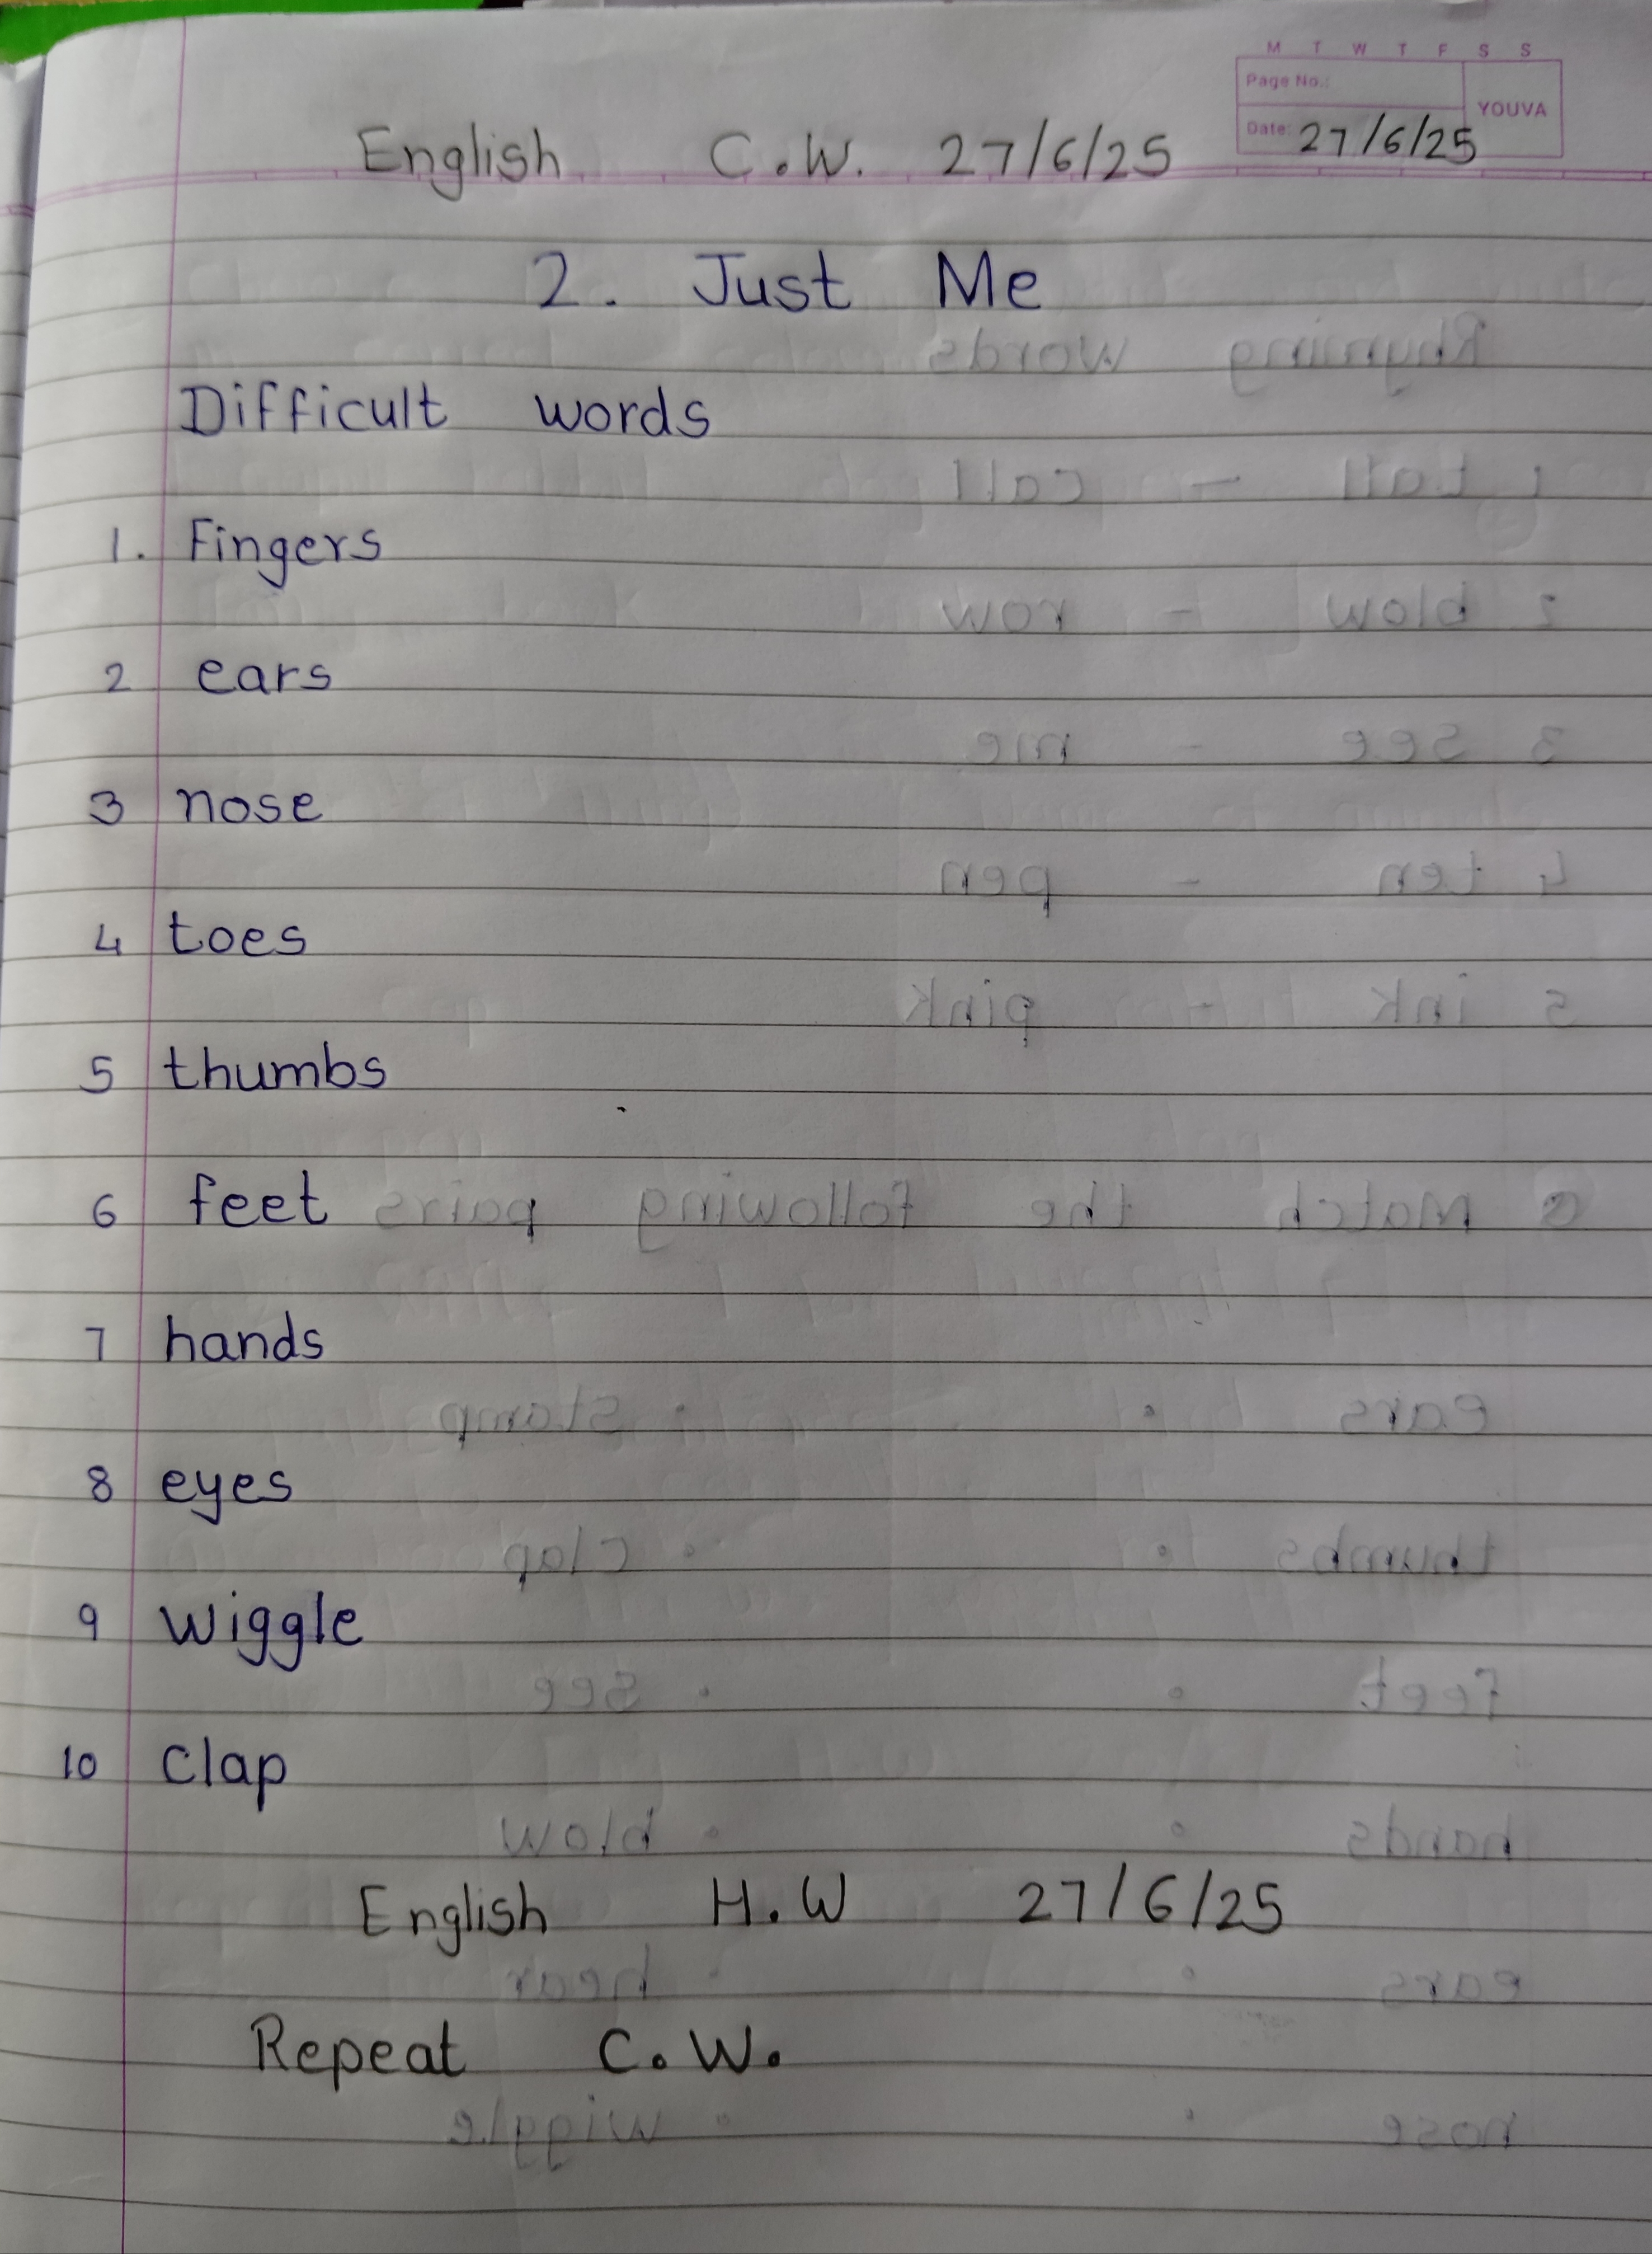 M T W T F S S
Page No.:
YOUVA
Date: 27/6/25
English C.W. 27/6/25
2. Just Me
Difficult words
1. Fingers
2 ears
3 nose
4 toes
5 thumbs
6 feet
7 hands
8 eyes
9 wiggle
10 clap
English H.W 27/6/25
Repeat C.W.